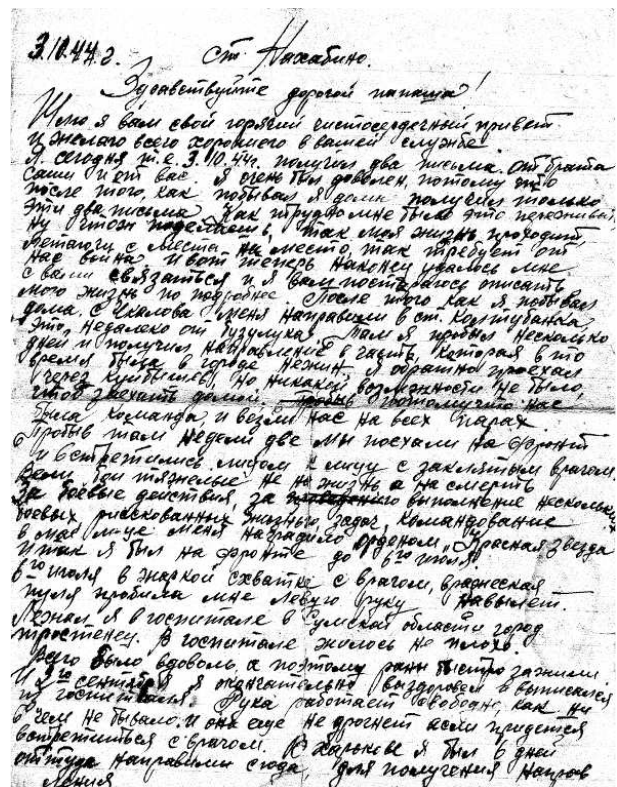 3.10.44 г. ст. Нахабино.
Здравствуйте дорогой папаша!
Шлю я вам свой горячий чистосердечный привет.
И желаю всего хорошего в вашей службе!
Я сегодня т.е. 3.10.44г. получил два письма. от брата
Саши и от вас я очень был доволен, потому что
после того, как побывал я дома получил только
эти два письма. Как трудно мне было это переживать
Ну чтож поделаешь, так моя жизнь проходит,
с места на место, так требует от
нас война. и вот теперь наконец удалось мне
с вами связаться и я вам постараюсь описать
мою жизнь по подробнее. После того как я побывал
дома. с Чкалова меня направили в ст. Колтубанка,
это недалеко от Бузулука. Там я пробыл несколько
дней и получил направление в часть, которая в то
время была в городе Нежин. Я обратно проехал
через Куйбышев, но никакой возможности не было,
чтоб заехать домой, потомучто нас
была команда и везли нас на всех парах
Пробыв там недели две мы поехали на фронт
и встретились лицом к лицу с заклятым врагом.
Вели бои тяжелые не на жизнь а на смерть
За боевые действия, за выполнение нескольких
боевых рискованных жизнью, задач, командование
в мае м-це меня наградило орденом „Красная звезда
Итак я был на фронте до 6го июля
6го июля в жаркой схватке с врагом, вражеская
пуля пробила мне левую руку навылет.
Лежал я в госпитале в Сумской области город
Тростенец. В госпитале жилось не плохо.
Всего было вдоволь, а поэтому раны быстро зажили
И сентября я окончательно выздоровел и выписался
из госпиталя. Рука работает свободно, как ни
в чем не бывало. и она еще не дрогнет если придется
встретиться с врагом. В Харькове я был 6 дней
оттуда направили сюда, для получения направ
ления